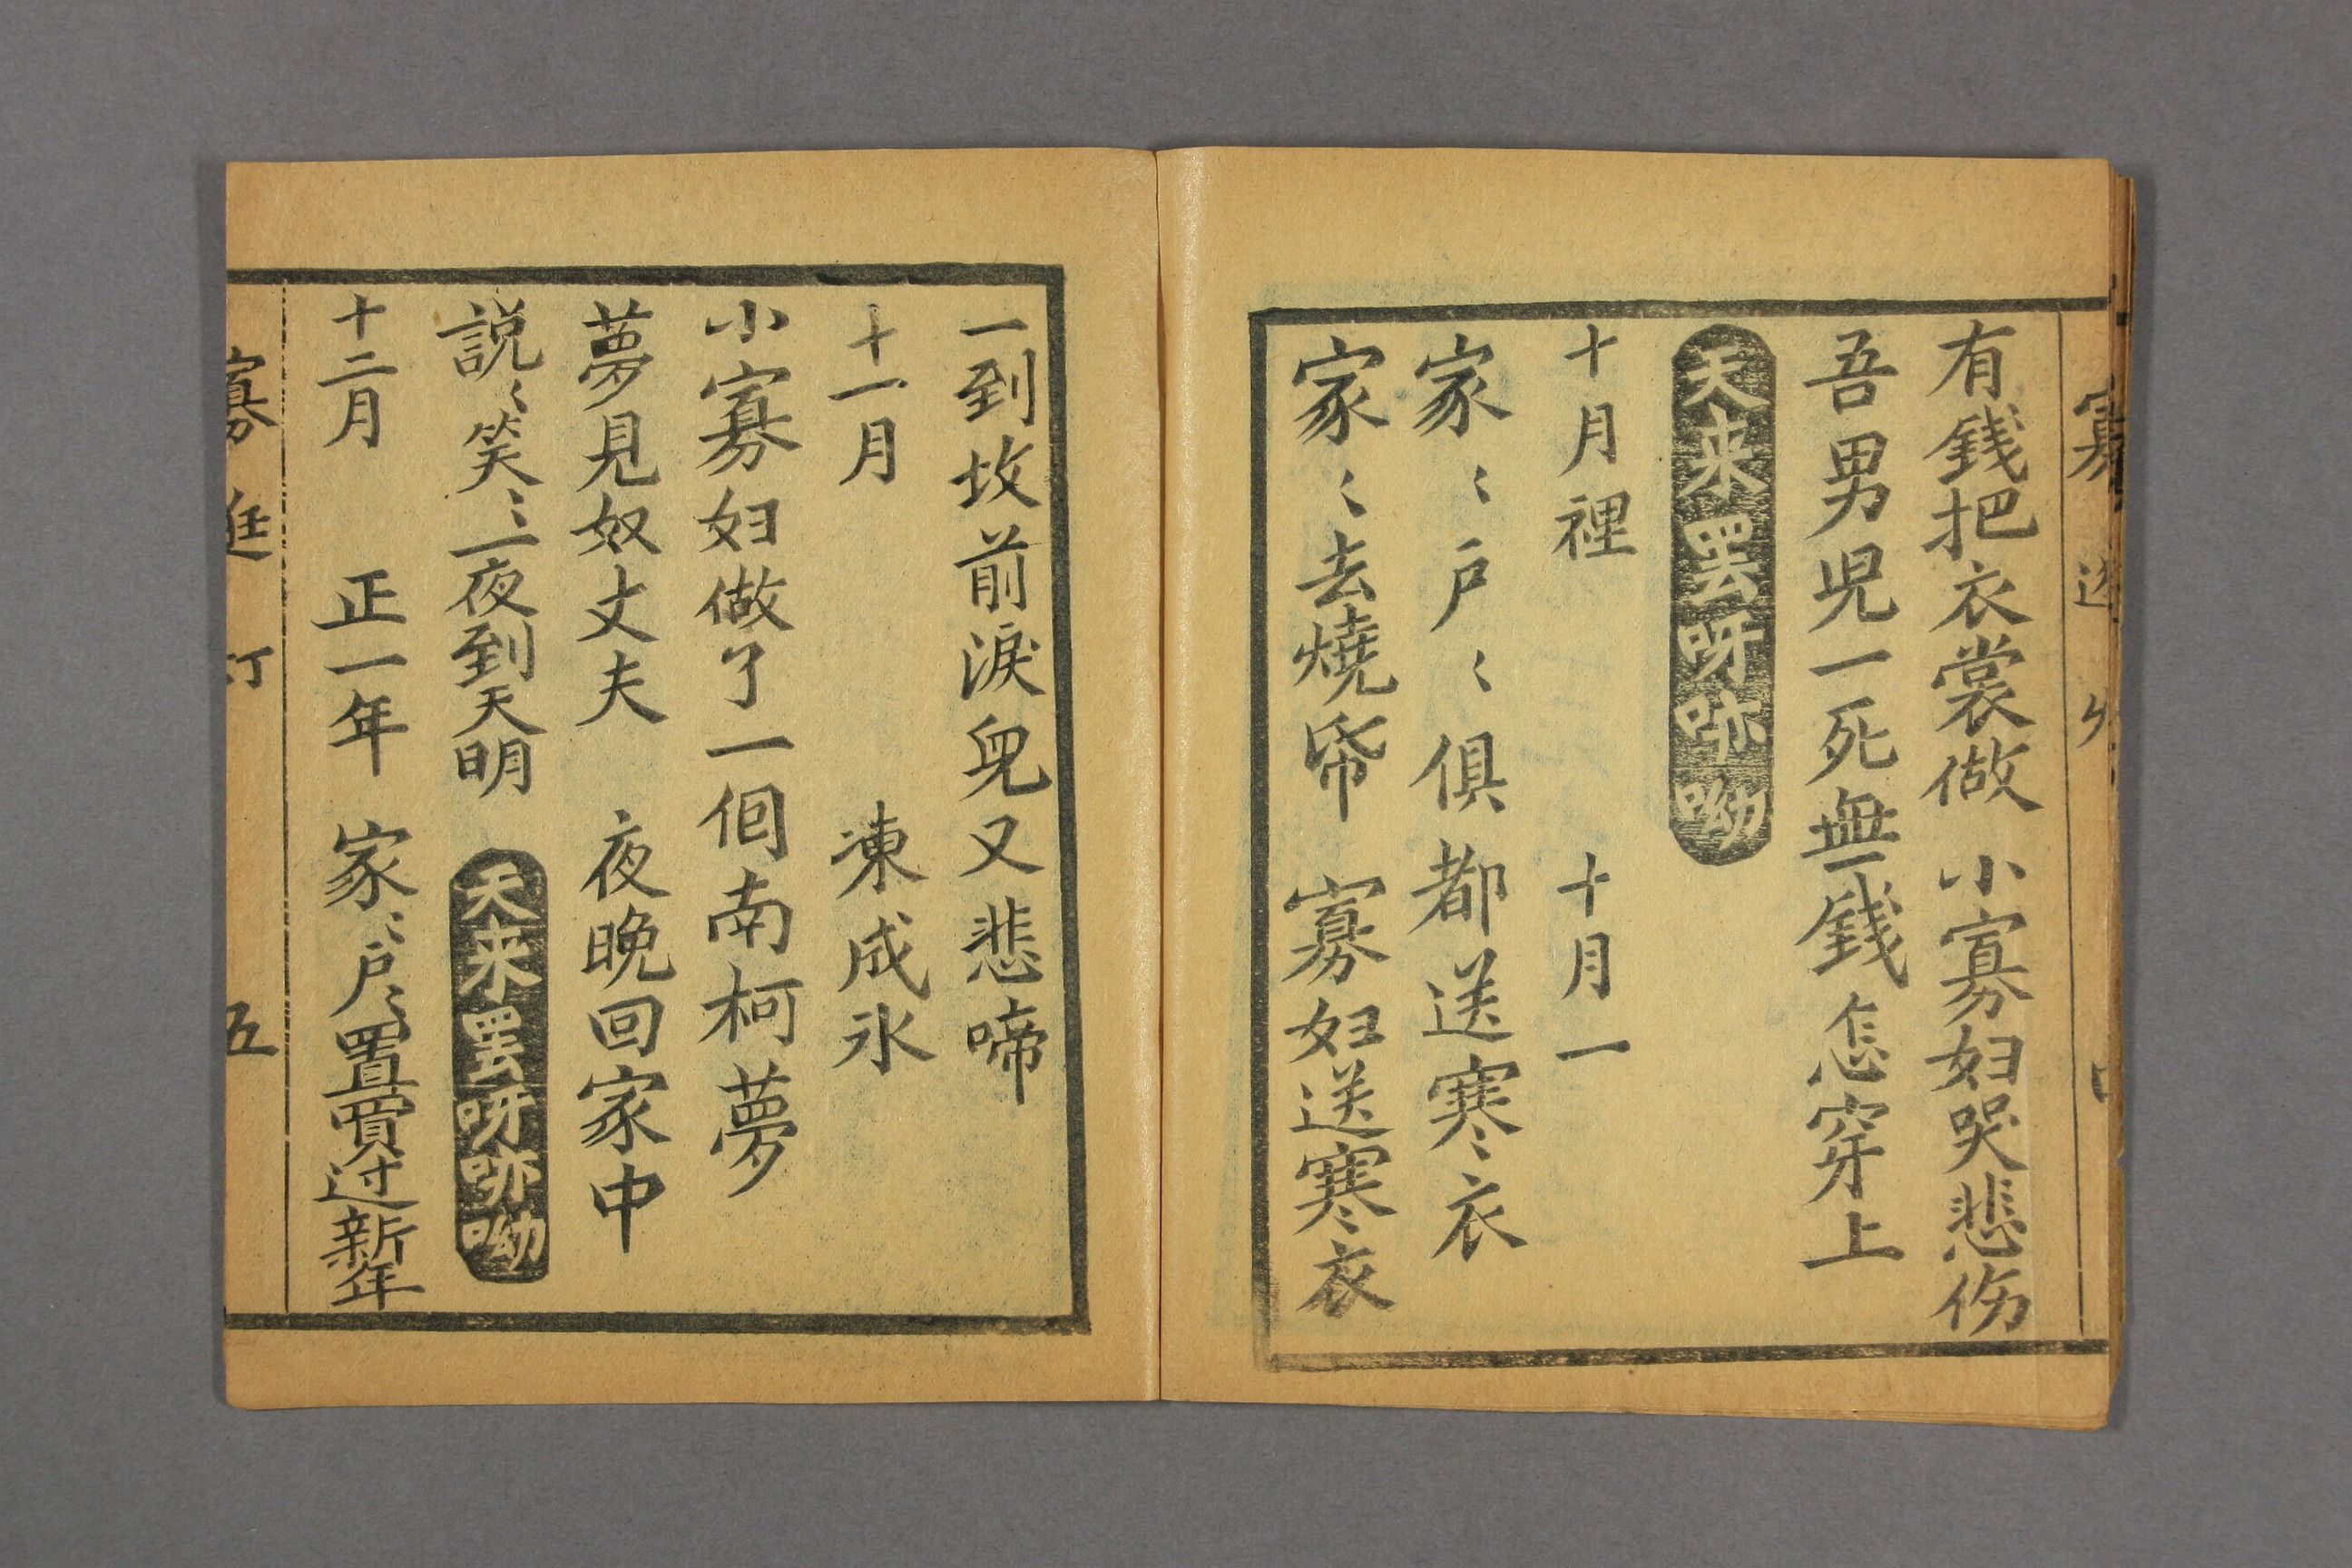 有錢把衣裳做　小寡妇哭悲伤
吾男児一死無錢怎穿上
天来罢呀咔呦
十月裡　十月一
家〻户〻俱都送寒衣
家〻去燒帋　寡妇送寒衣
一到坟前淚皃又悲啼
十一月　凍成氷
小寡妇做了一個南柯夢
夢見奴丈夫　夜晚回家中
説〻笑〻一夜到天明
天来罢呀咔呦
十二月　正一年　家〻户〻置買过新年
寡
五